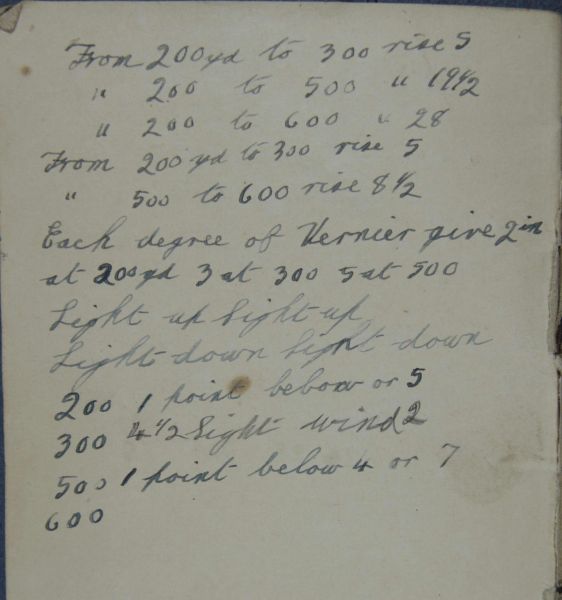 From 200 yd to 300 rise 5
" 200 to 500 " 19 1/2
" 200 to 600 " 28
From 200 yd to 300 rise 5
" 500 to 600 rise 8 1/2
Each degree of Vernier give 2 in
at 200 yd 3 at 300 5 at 500
Light up Sight up
Light down Sight down
200 1 point below or 5
300 4 1/2 Light wind 2
500 1 point below 4 or 7
600